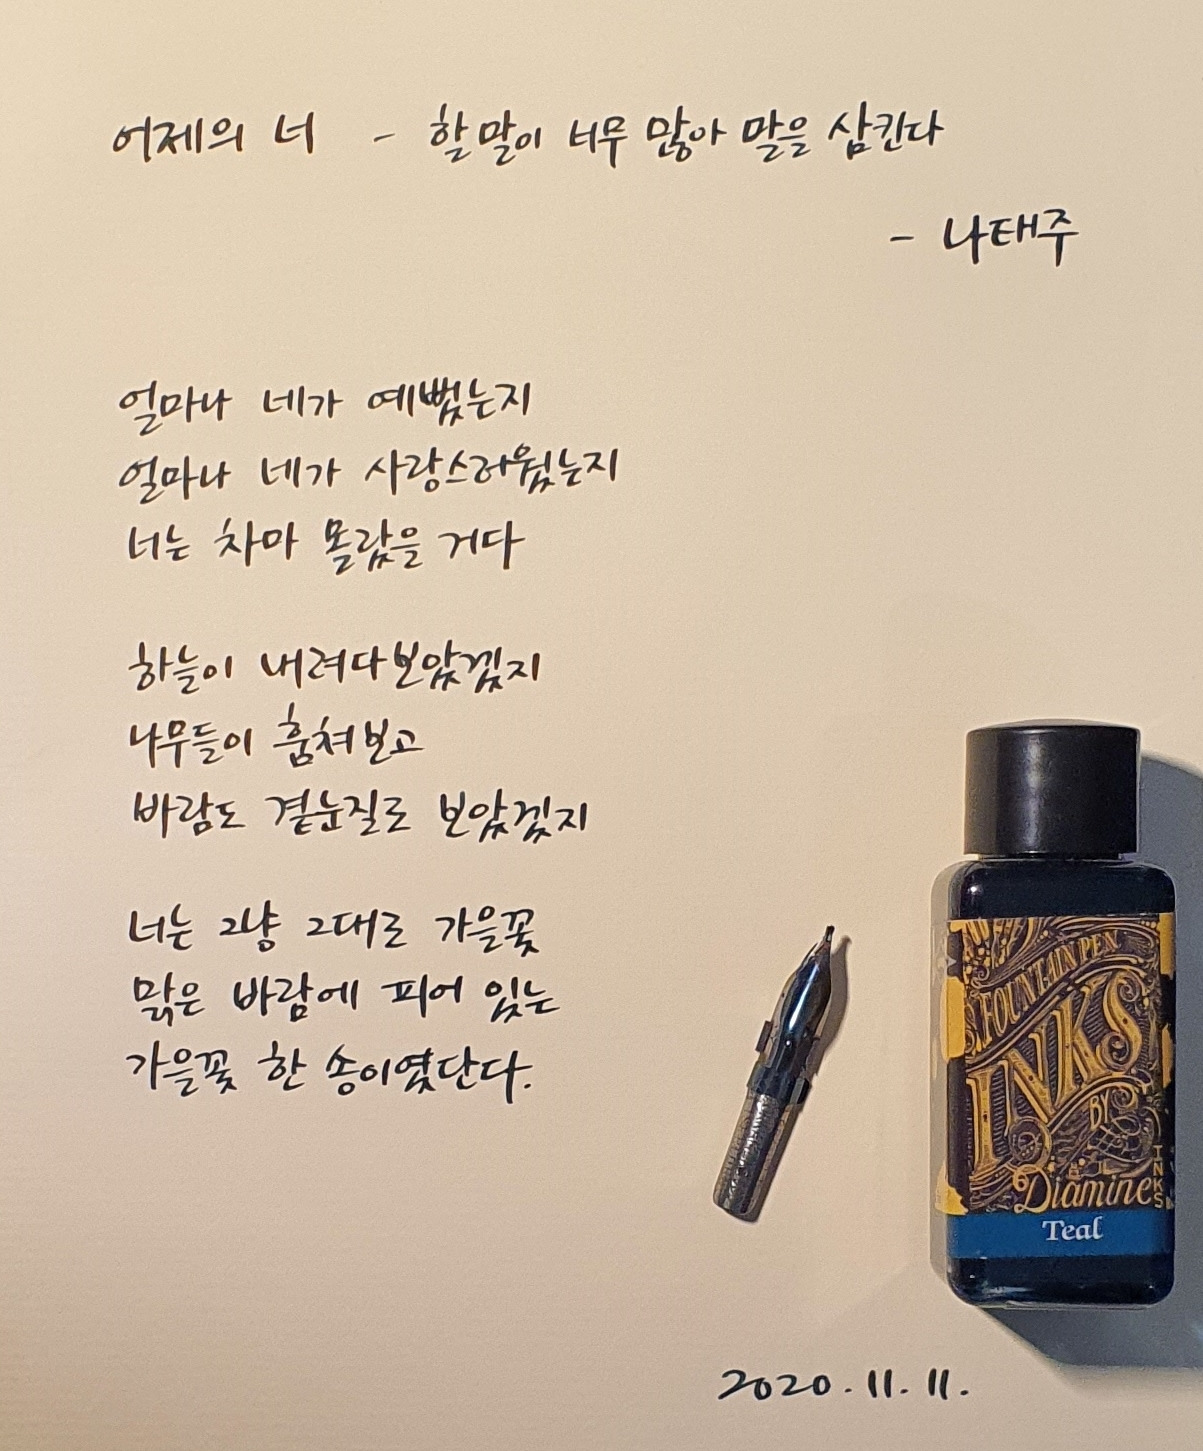 어제의 너 - 할 말이 너무 많아 말을 삼킨다
- 나태주
얼마나 네가 예뻤는지
얼마나 네가 사랑스러웠는지
너는 차마 몰랐을 거다
하늘이 내려다보았겠지
나무들이 훔쳐보고
바람도 곁눈질로 보았겠지
너는 그냥 그대로 가을꽃
맑은 바람에 피어 있는
가을꽃 한 송이였단다.
FOUNTAIN PEN
INKS
BY
Diamine
INKS
Teal
2020. 11. 11.